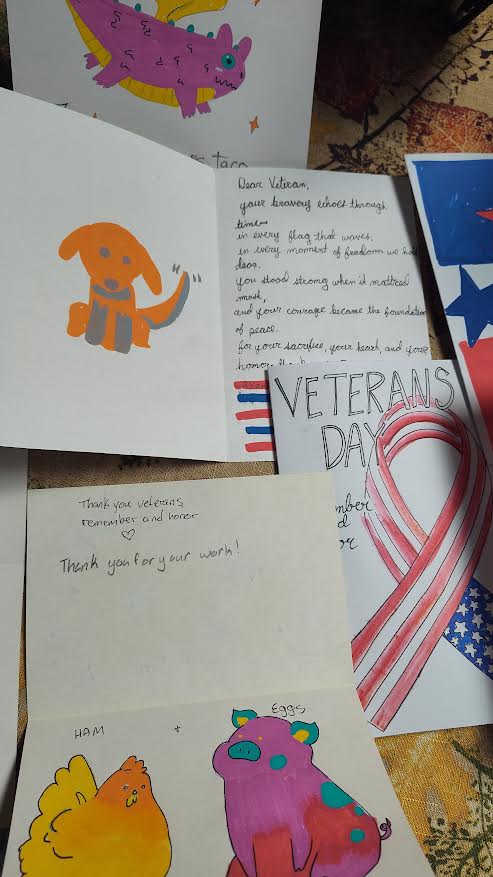 taco
Dear Veteran,
your bravery echoes through
time
in every flag that waves,
in every moment of freedom we hold
dear.
you stood strong when it mattred
most,
and your courage became the foundation
of peace.
for your sacrifice, your heart, and your
honor
VETERANS
DAY
Thank you veterans,
remember and honor
♡
Thank you for your work!
HAM + Eggs